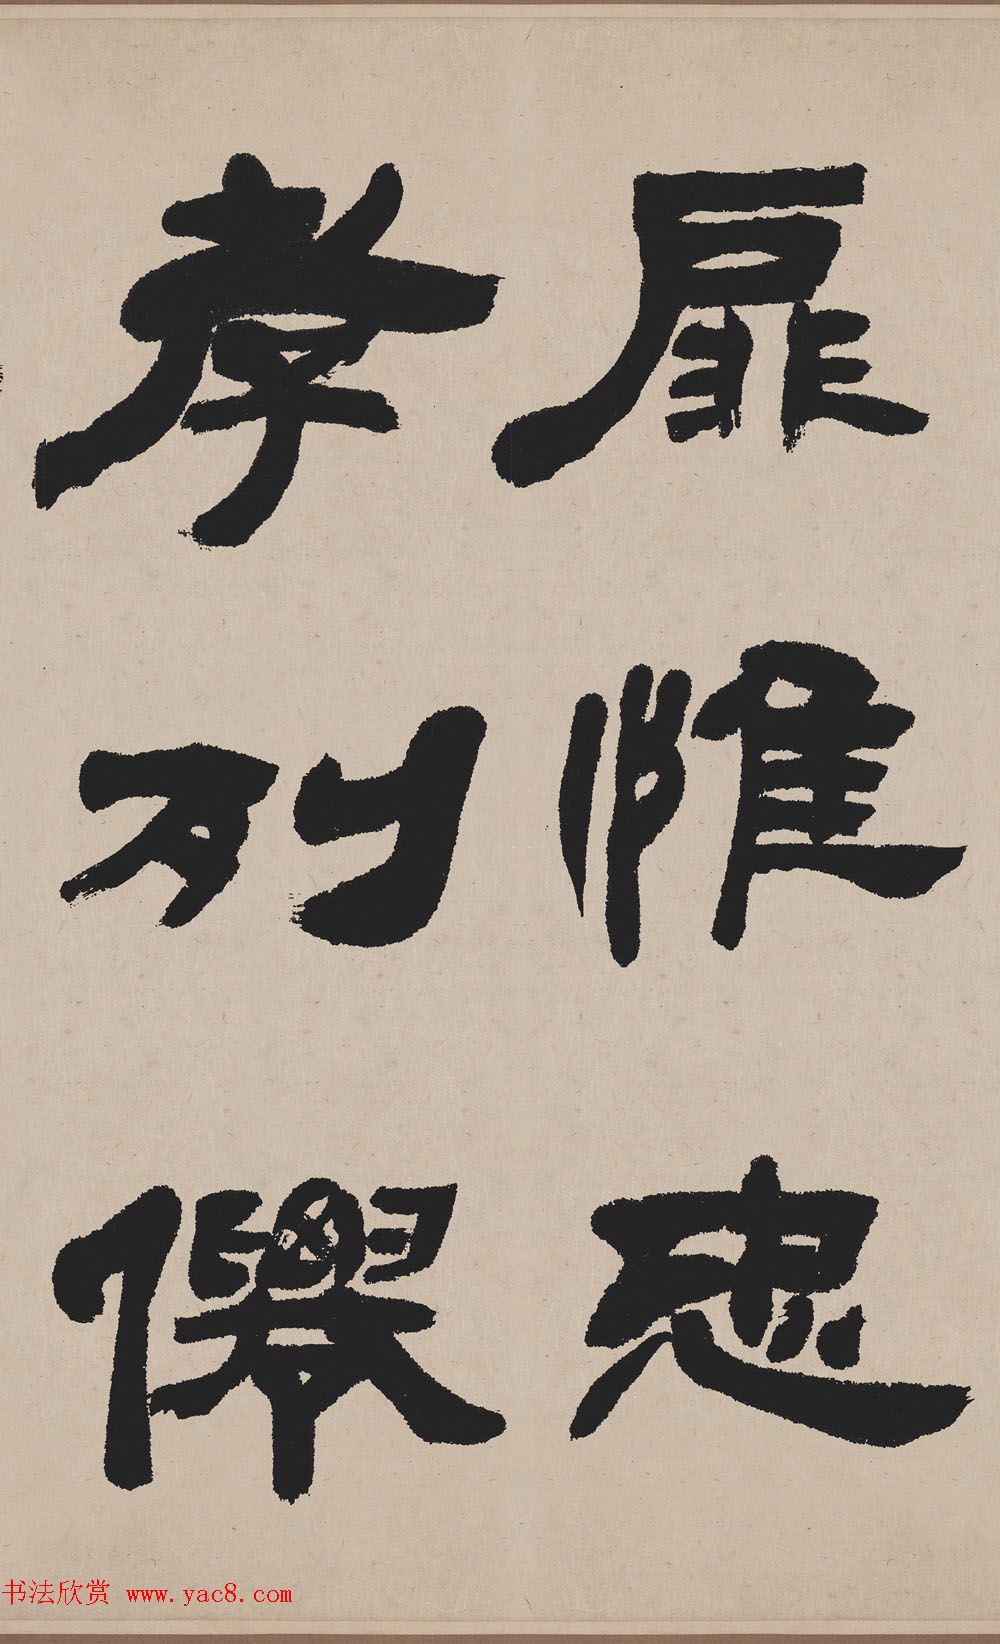 扉惟忠
孝列僊
书法欣赏 www.yac8.com